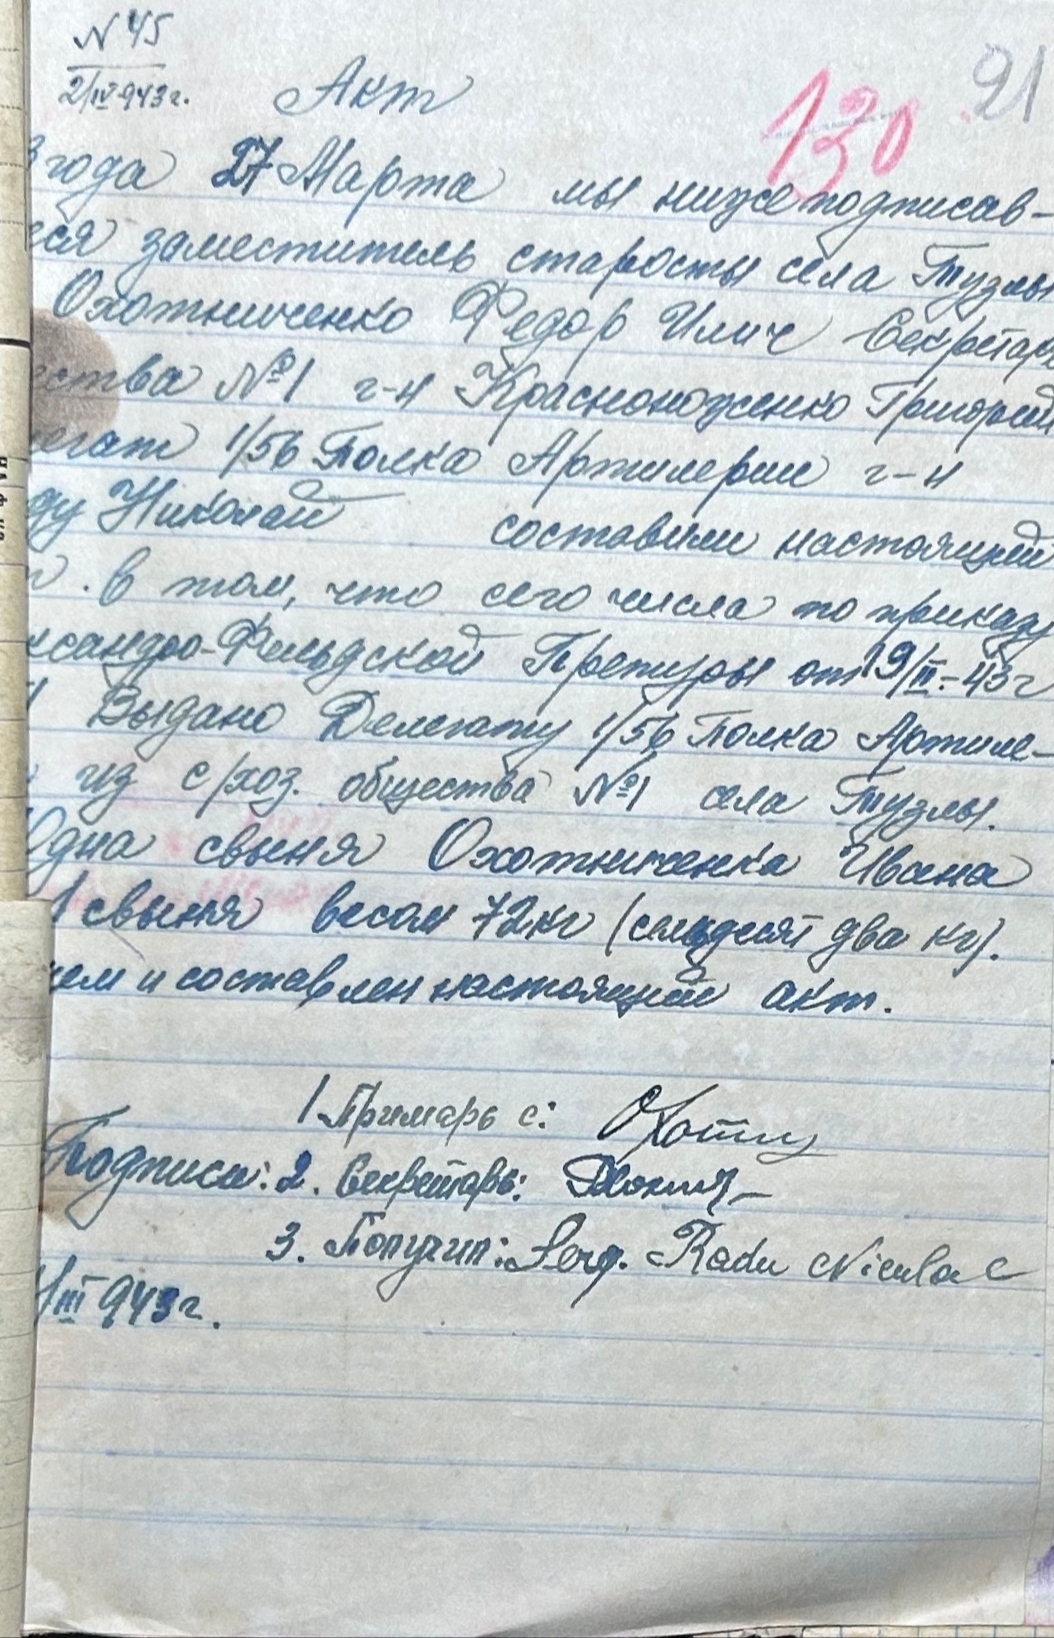 N 45
2/IV-943 г.
Акт
130
91
3 года 27 Марта мы нижеподписав-
еся заместитель старосты села Тузлы
Охотниченко Федор Илич Секретарь
ества №1 г-н Красноноженко Григорий
егат 1/56 Полка Артилерии г-н
ду Николай составили настоящий
т. в том, что сего числа по приказу
ксандро-Фельдской Претуры от 19/III-43 г
Выдано Делегату 1/56 Полка Артиле-
из с/хоз. общества №1 села Тузлы.
Одна свыня Охотниченка Ивана
1 свыня весом 72 кг (семьдесят два кг).
чем и составлен настоящий акт.
1 Примарь с: Охотни
Подписи: 2. Секретарь:
3. Получил: Serg. Radu Niculae
/III 943 г.